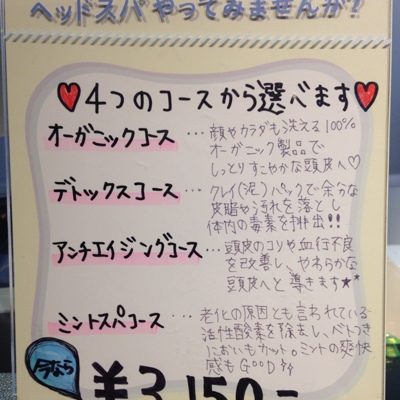 ヘッドスパやってみませんか?
♥4つのコースから選べます♥
オーガニックコース…顔やカラダも洗える100%
オーガニック製品で
しっとりすこやかな頭皮へ♡
デトックスコース…クレイ(泥)パックで余分な
皮脂や汚れを落とし
体内の毒素を排出!!
アンチエイジングコース…頭皮のコリや血行不良
を改善し、やわらかな
頭皮へと導きます★★
ミントスパコース…老化の原因とも言われている
活性酸素を除去し、ベトつき
においもカット。ミントの爽快
感もGOOD
今なら
¥3,150-